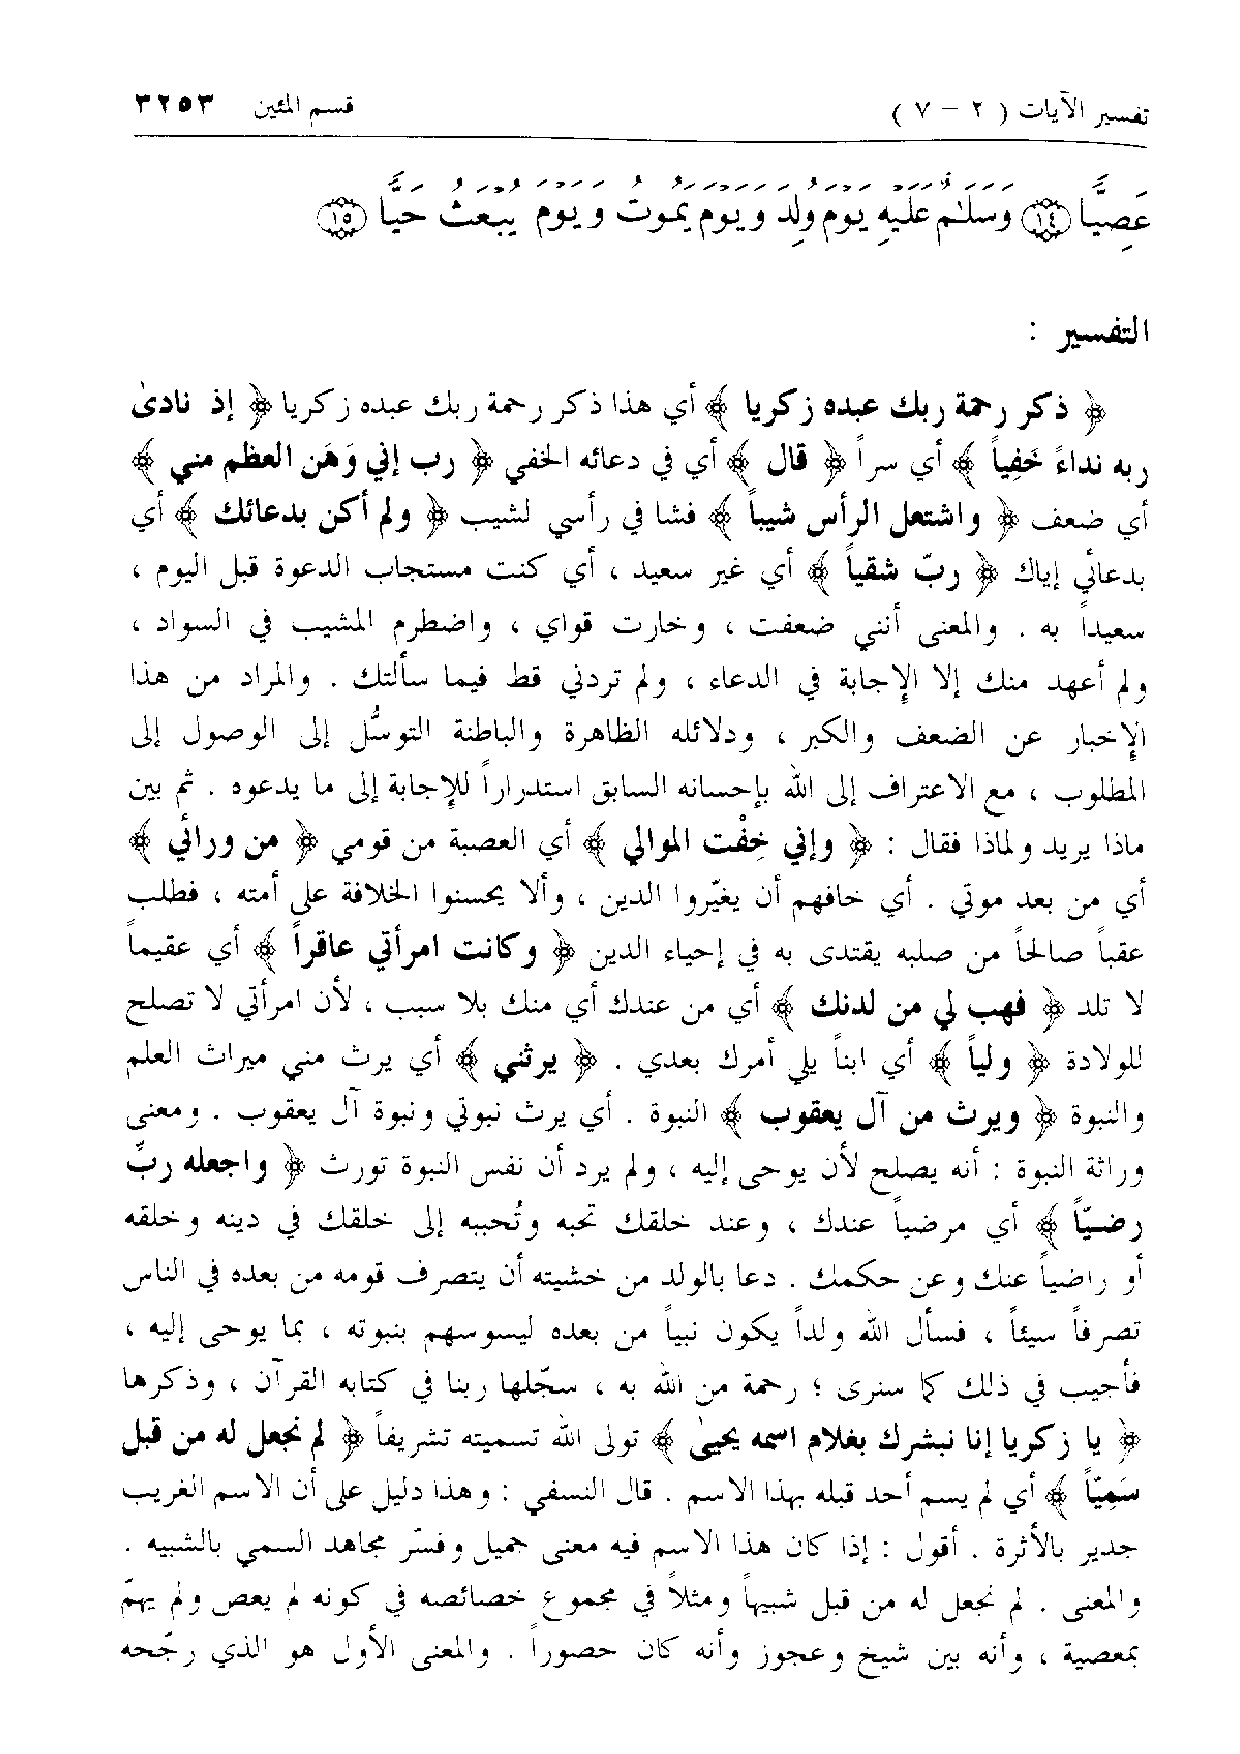 تفسير الآيات ( ٢ - ٧ )
قسم المئين ٣٢٥٣
عَصِيًّا ﴿١٤﴾ وَسَلَٰمٌ عَلَيْهِ يَوْمَ وُلِدَ وَيَوْمَ يَمُوتُ وَيَوْمَ يُبْعَثُ حَيًّا ﴿١٥﴾
التفسير :
﴿ ذكر رحمة ربك عبده زكريا ﴾ أي هذا ذكر رحمة ربك عبده زكريا ﴿ إذ نادىٰ
ربه نداءً خَفِياً ﴾ أي سراً ﴿ قال ﴾ أي في دعائه الخفي ﴿ رب إني وَهَن العظم مني ﴾
أي ضعف ﴿ واشتعل الرأس شيباً ﴾ فشا في رأسي لشيب ﴿ ولم أكن بدعائك ﴾ أي
بدعائي إياك ﴿ ربّ شقياً ﴾ أي غير سعيد ، أي كنت مستجاب الدعوة قبل اليوم ،
سعيداً به . والمعنى أنني ضعفت ، وخارت قواي ، واضطرم المشيب في السواد ،
ولم أعهد منك إلا الإجابة في الدعاء ، ولم تردني قط فيما سألتك . والمراد من هذا
الإخبار عن الضعف والكبر ، ودلائله الظاهرة والباطنة التوسُّل إلى الوصول إلى
المطلوب ، مع الاعتراف إلى الله بإحسانه السابق استدراراً للإجابة إلى ما يدعوه . ثم بين
ماذا يريد ولماذا فقال : ﴿ وإني خِفْت الموالي ﴾ أي العصبة من قومي ﴿ من ورائي ﴾
أي من بعد موتي . أي خافهم أن يغيّروا الدين ، وألا يحسنوا الخلافة على أمته ، فطلب
عقباً صالحاً من صلبه يقتدى به في إحياء الدين ﴿ وكانت امرأتي عاقراً ﴾ أي عقيماً
لا تلد ﴿ فهب لي من لدنك ﴾ أي من عندك أي منك بلا سبب ، لأن امرأتي لا تصلح
للولادة ﴿ ولياً ﴾ أي ابناً يلي أمرك بعدي . ﴿ يرثني ﴾ أي يرث مني ميراث العلم
والنبوة ﴿ ويرث من آل يعقوب ﴾ النبوة . أي يرث نبوتي ونبوة آل يعقوب . ومعنى
وراثة النبوة : أنه يصلح لأن يوحى إليه ، ولم يرد أن نفس النبوة تورث ﴿ واجعله ربّ
رضيّاً ﴾ أي مرضياً عندك ، وعند خلقك تحبه وتُحببه إلى خلقك في دينه وخلقه
أو راضياً عنك وعن حكمك . دعا بالولد من خشيته أن يتصرف قومه من بعده في الناس
تصرفاً سيئاً ، فسأل الله ولداً يكون نبياً من بعده ليسوسهم بنبوته ، بما يوحى إليه ،
فأجيب في ذلك كما سنرى ؛ رحمة من الله به ، سجّلها ربنا في كتابه القرآن ، وذكرها
﴿ يا زكريا إنا نبشرك بغلام اسمه يحيىٰ ﴾ تولى الله تسميته تشريفاً ﴿ لم نجعل له من قبل
سَمِيّاً ﴾ أي لم يسم أحد قبله بهذا الاسم . قال النسفي : وهذا دليل على أن الاسم الغريب
جدير بالأثرة . أقول : إذا كان هذا الاسم فيه معنى جميل وفسّر مجاهد السمي بالشبيه .
والمعنى . لم نجعل له من قبل شبيهاً ومثلاً في مجموع خصائصه في كونه لم يعص ولم يهمّ
بمعصية ، وأنه بين شيخ وعجوز وأنه كان حصوراً . والمعنى الأول هو الذي رجّحه